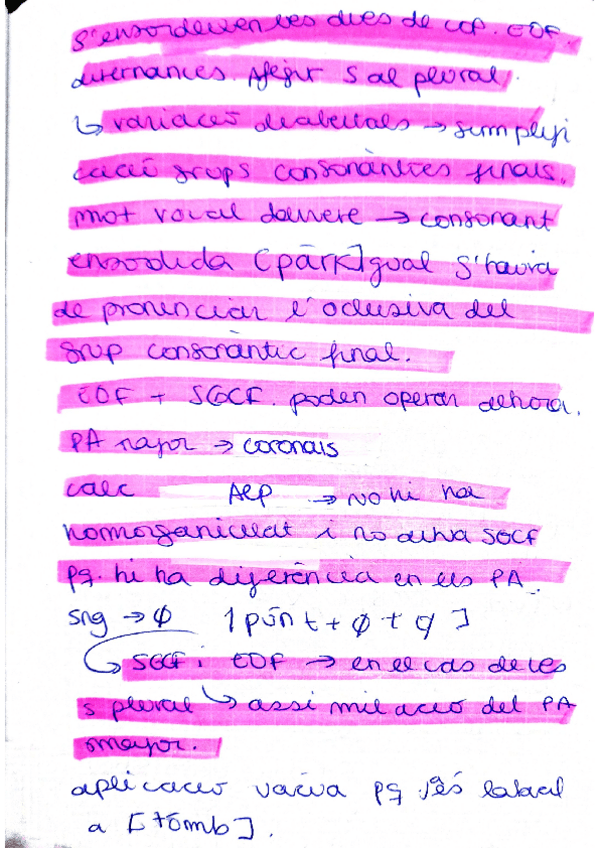 S'ensordeixen les dues de cop. EOF.
alternances. Afegir s al plural.
↳ variació dialectals → simplifi
cació grups consonàntics finals.
mot vocal darrere → consonant
ensordida [párk] igual s'hauria
de pronunciar l'oclusiva del
grup consonàntic final.
EOF + SGCF. poden operar alhora.
PA major → coronals
calc AEP → no hi ha
homorganicitat i no actua SGCF
pq. hi ha diferència en els PA.
sng → Ø [pún t + Ø + ]
↳ SGCF i EOF → en el cas de les
s plural ↳ assimilació del PA
major.
aplicació vàcua pq és labial
a [tómb].